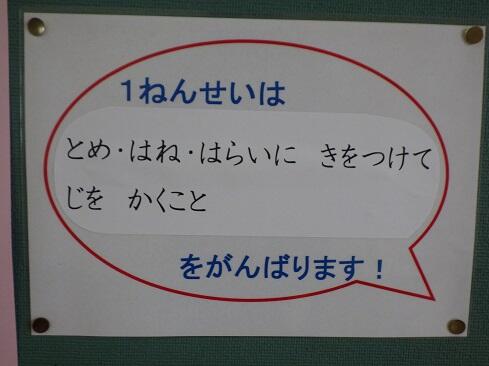 1ねんせいは
とめ・はね・はらいに　きをつけて
じを　かくこと
をがんばります！